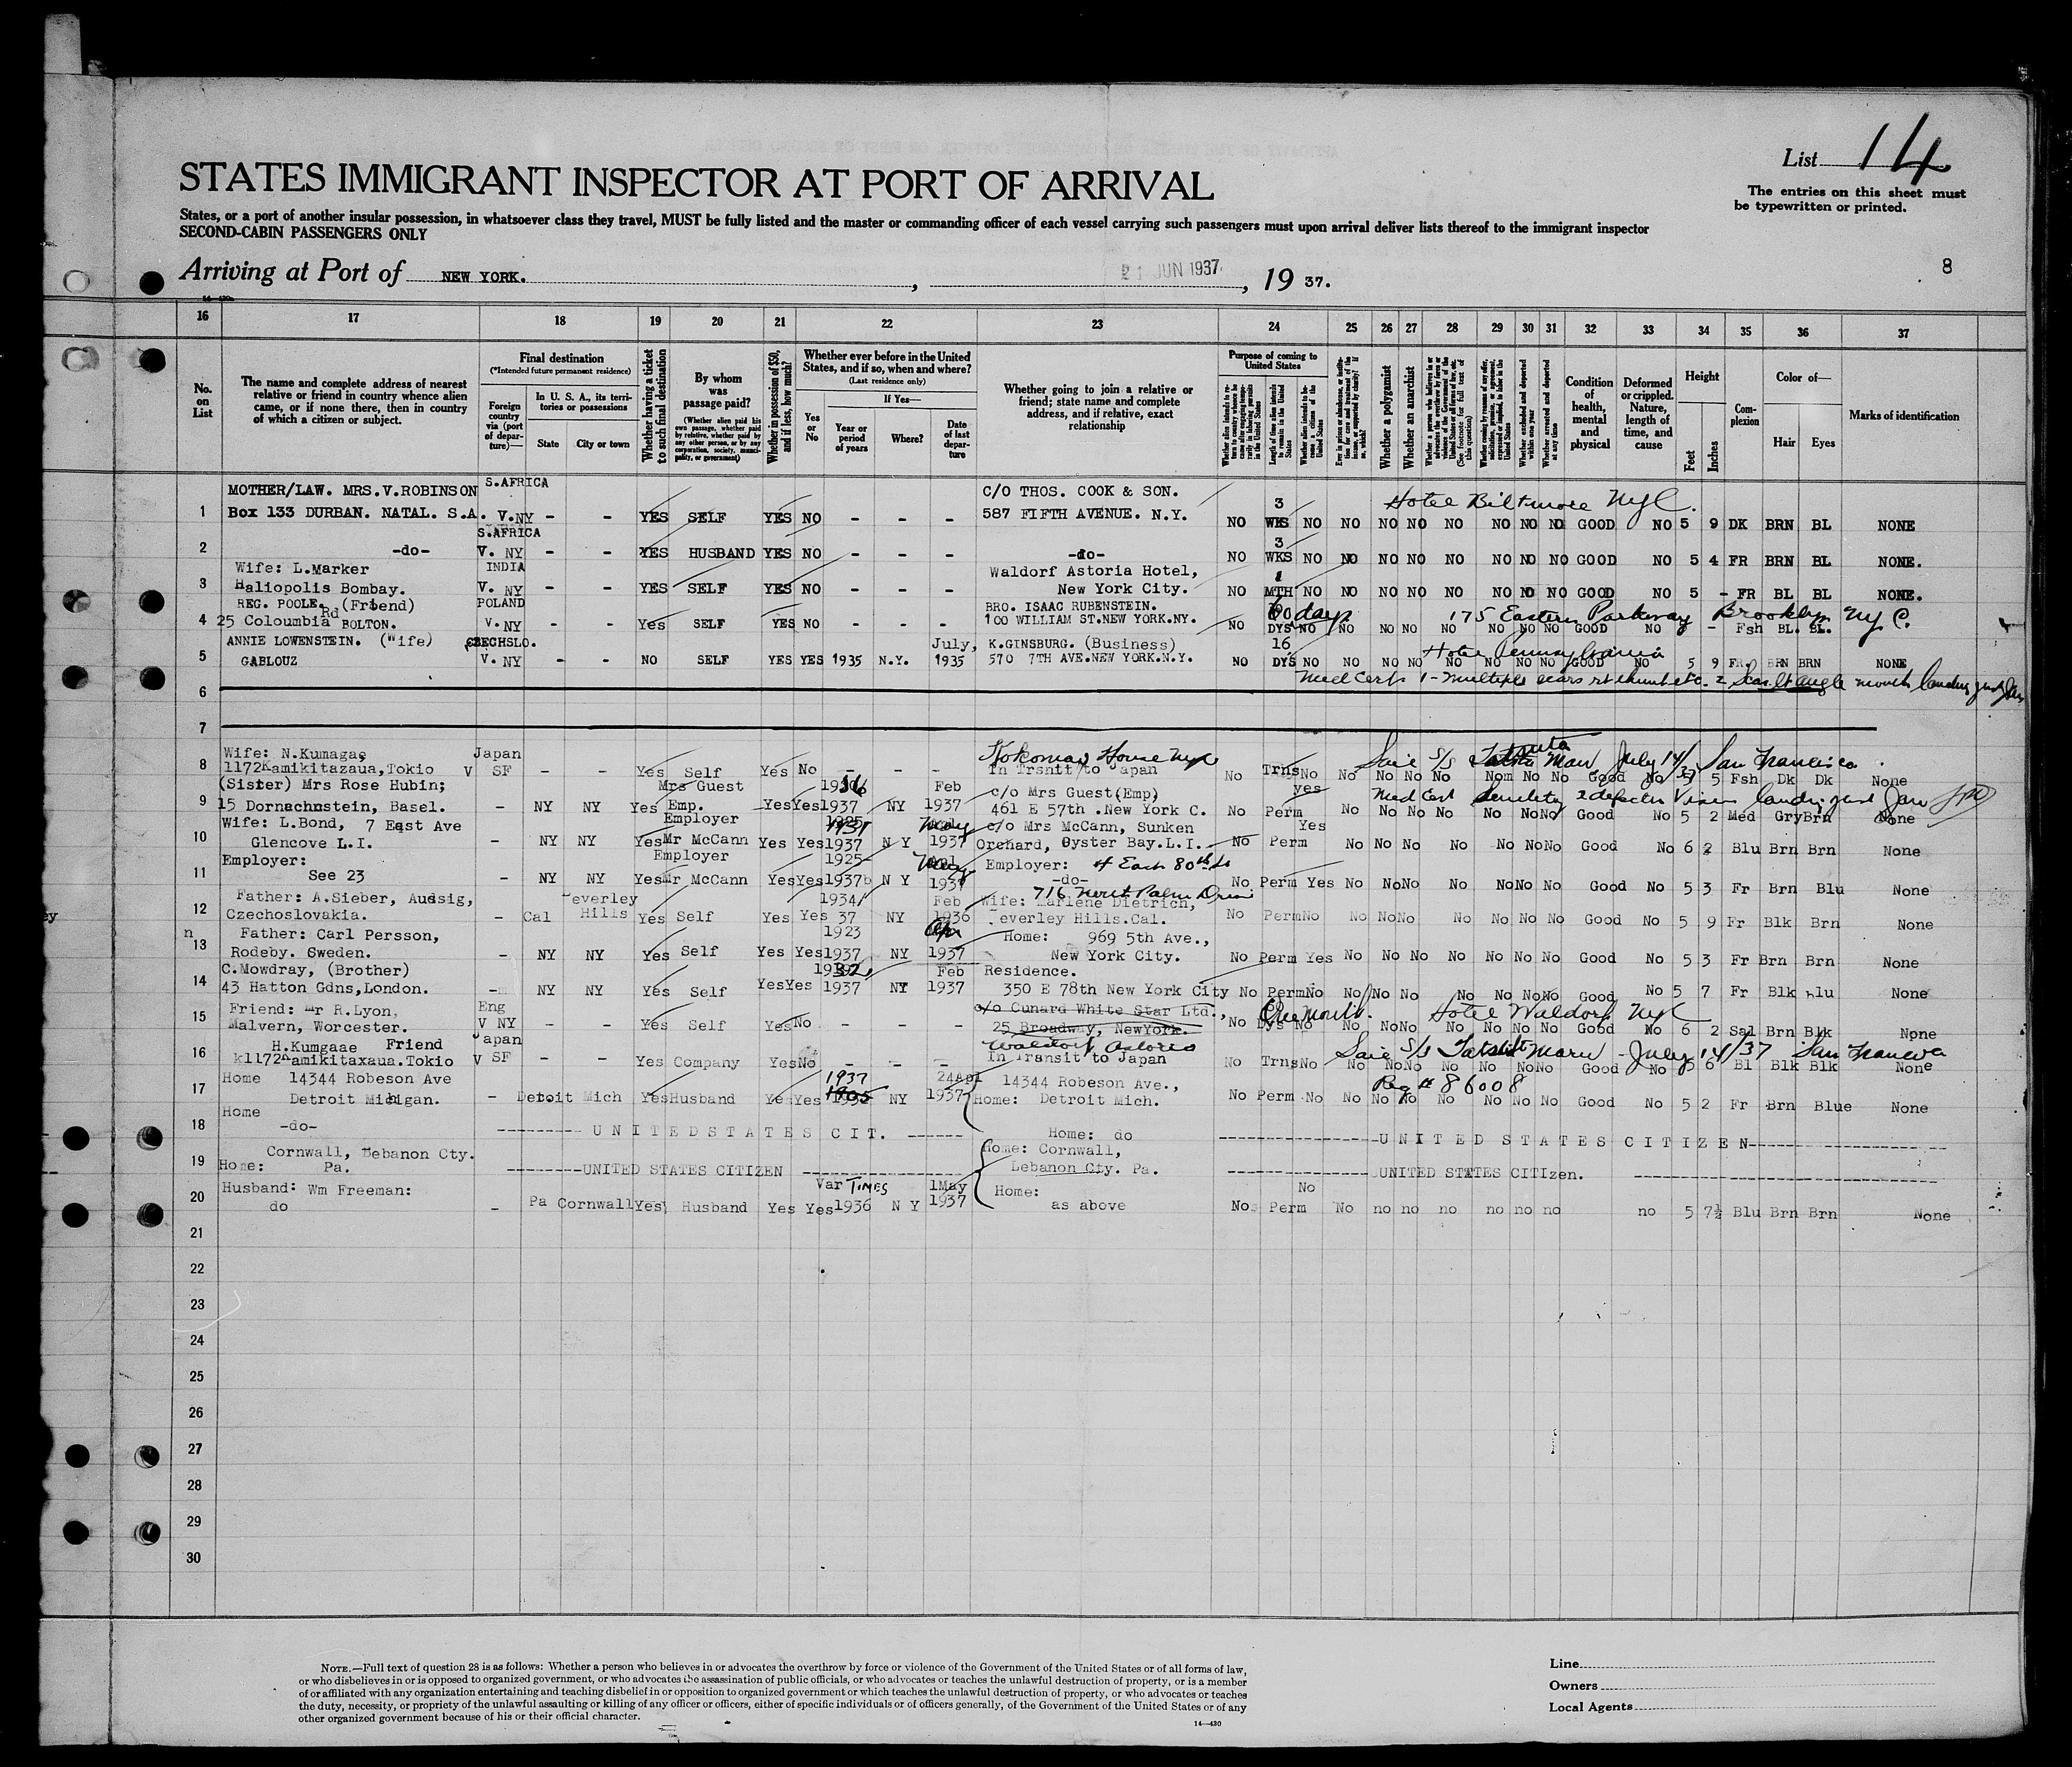 List 14
The entries on this sheet must
be typewritten or printed.
STATES IMMIGRANT INSPECTOR AT PORT OF ARRIVAL
States, or a port of another insular possession, in whatsoever class they travel, MUST be fully listed and the master or commanding officer of each vessel carrying such passengers must upon arrival deliver lists thereof to the immigrant inspector
SECOND-CABIN PASSENGERS ONLY
Arriving at Port of NEW YORK. , 21 JUN 1937 , 19 37.
8
16 17 18 19 20 21 22 23 24 25 26 27 28 29 30 31 32 33 34 35 36 37
No. on List
The name and complete address of nearest relative or friend in country whence alien came, or if none there, then in country of which a citizen or subject.
Final destination
(*Intended future permanent residence)
Foreign country via (port of departure)—
In U. S. A., its territories or possessions
State
City or town
Whether having a ticket to such final destination
By whom was passage paid?
(Whether alien paid his own passage, whether paid by relative, whether paid by any other person, or by any corporation, society, municipality, or government)
Whether in possession of $50, and if less, how much?
Whether ever before in the United States, and if so, when and where?
(Last residence only)
Yes or No
If Yes—
Year or period of years
Where?
Date of last departure
Whether going to join a relative or friend; state name and complete address, and if relative, exact relationship
Purpose of coming to United States
Length of time alien intends to remain in the United States
Whether a polygamist
Whether an anarchist
Condition of health, mental and physical
Deformed or crippled. Nature, length of time, and cause
Height
Feet
Inches
Complexion
Color of—
Hair
Eyes
Marks of identification
1 MOTHER/LAW. MRS.V.ROBINSON S.AFRICA C/O THOS. COOK & SON. 3 Hotel Biltmore NYC.
Box 133 DURBAN. NATAL. S.A. V.NY - - YES SELF YES NO - - - 587 FIFTH AVENUE. N.Y. NO WKS NO NO NO NO NO NO NO NO GOOD NO 5 9 DK BRN BL NONE
2 S.AFRICA 3
-do- V. NY - - YES HUSBAND YES NO - - - -do- NO WKS NO NO NO NO NO NO NO NO GOOD NO 5 4 FR BRN BL NONE.
3 Wife: L.Marker INDIA Waldorf Astoria Hotel, 1
Haliopolis Bombay. V. NY - - YES SELF YES NO - - - New York City. NO MTH NO NO NO NO NO NO NO NO GOOD NO 5 - FR BL BL NONE.
4 REG. POOLE. (Friend) POLAND BRO. ISAAC RUBENSTEIN. 60 days 175 Eastern Parkway Brooklyn NYC.
25 Coloumbia Rd BOLTON. V.NY - - Yes SELF YES NO - - - 100 WILLIAM ST.NEW YORK.NY. NO DYS NO NO NO NO NO NO NO NO GOOD NO - Fsh BL. BL.
5 ANNIE LOWENSTEIN. (Wife) CZECHSLO. July, K.GINSBURG. (Business) 16 Hotel Pennsylvania
GABLOUZ V. NY - - NO SELF YES YES 1935 N.Y. 1935 570 7TH AVE.NEW YORK.N.Y. NO DYS NO NO NO NO NO NO NO NO GOOD NO 5 9 FR. BRN BRN NONE
6 Med Cert 1 - Multiple scars rt thumb etc. 2 Scar lt angle mouth
7
8 Wife: N.Kumagae Japan Kokomar House Nyc
1172Kamikitazaua,Tokio V SF - - Yes Self Yes No - - - In Trsnit to Japan No Trns No No No No No Nom No No Good No 5 Fsh Dk Dk None
July 14/37 San Francisco.
9 (Sister) Mrs Rose Hubin; Mrs Guest 1936 Feb c/o Mrs Guest(Emp) yes
15 Dornachnstein, Basel. - NY NY Yes Emp. Yes Yes 1937 NY 1937 461 E 57th .New York C. No Perm No No No No No No No Good No 5 2 Med Gry Brn None
10 Wife: L.Bond, 7 East Ave Employer 1931 May c/o Mrs McCann, Sunken Yes
Glencove L.I. - NY NY Yes Mr McCann Yes Yes 1937 N Y 1937 Orchard, Oyster Bay.L.I. No Perm No No No No No No No Good No 6 2 Blu Brn Brn None
11 Employer: Employer 1925- May Employer: 4 East 80th St
See 23 - NY NY Yes Mr McCann Yes Yes 1937 N Y 1937 -do- No Perm Yes No No No No No No No Good No 5 3 Fr Brn Blu None
12 Father: A.Sieber, Audsig, Beverley 1934/ Feb 716 North Palm Drive Wife: Marlene Dietrich,
Czechoslovakia. - Cal Hills Yes Self Yes Yes 37 NY 1936 Beverley Hills.Cal. No Perm No No No No No No No No Good No 5 9 Fr Blk Brn None
13 Father: Carl Persson, 1923 Apr Home: 969 5th Ave.,
Rodeby. Sweden. - NY NY Yes Self Yes Yes 1937 NY 1937 New York City. No Perm Yes No No No No No No No Good No 5 3 Fr Brn Brn None
14 C.Mowdray, (Brother) 1932 Feb Residence.
43 Hatton Gdns,London. - NY NY Yes Self Yes Yes 1937 NY 1937 350 E 78th New York City No Perm No No No No No No No No Good No 5 7 Fr Blk Blu None
15 Friend: Mr R.Lyon, Eng c/o Cunard White Star Ltd., One month. Hotel Waldorf NYC
Malvern, Worcester. V NY - - Yes Self Yes No - - - 25 Broadway, NewYork. No Dys No No No No No No No No Good No 6 2 Sal Brn Blk None
Waldorf Astoria
16 H.Kumgaae Friend Japan
k1172Kamikitaxaua.Tokio V SF - - Yes Company Yes No - - - In Transit to Japan No Trns No No No No No No No No Good No 5 6 Bl Blk Blk None
Maru - July 14/37 San Francisco
17 Home 14344 Robeson Ave 1937 24Apl 14344 Robeson Ave., Reg # 86008
Detroit Michigan. - Detroit Mich Yes Husband Yes Yes NY 1937 Home: Detroit Mich. No Perm No No No No No No No No Good No 5 2 Fr Brn Blue None
18 Home
-do- UNITED STATES CIT. Home: do UNITED STATES CITIZEN
19 Cornwall, Lebanon Cty. Home: Cornwall,
Home: Pa. UNITED STATES CITIZEN Lebanon Cty. Pa. UNITED STATES CITIzen.
20 Husband: Wm Freeman: Var TIMES 1May Home: No
do - Pa Cornwall Yes Husband Yes Yes 1936 N Y 1937 as above No Perm No no no no no no no no 5 7½ Blu Brn Brn None
21
22
23
24
25
26
27
28
29
30
NOTE.—Full text of question 28 is as follows: Whether a person who believes in or advocates the overthrow by force or violence of the Government of the United States or of all forms of law,
or who disbelieves in or is opposed to organized government, or who advocates the assassination of public officials, or who advocates or teaches the unlawful destruction of property, or is a member
of or affiliated with any organization entertaining and teaching disbelief in or opposition to organized government or which teaches the unlawful destruction of property, or who advocates or teaches
the duty, necessity, or propriety of the unlawful assaulting or killing of any officer or officers, either of specific individuals or of officers generally, of the Government of the United States or of any
other organized government because of his or their official character.
14—430
Line
Owners
Local Agents